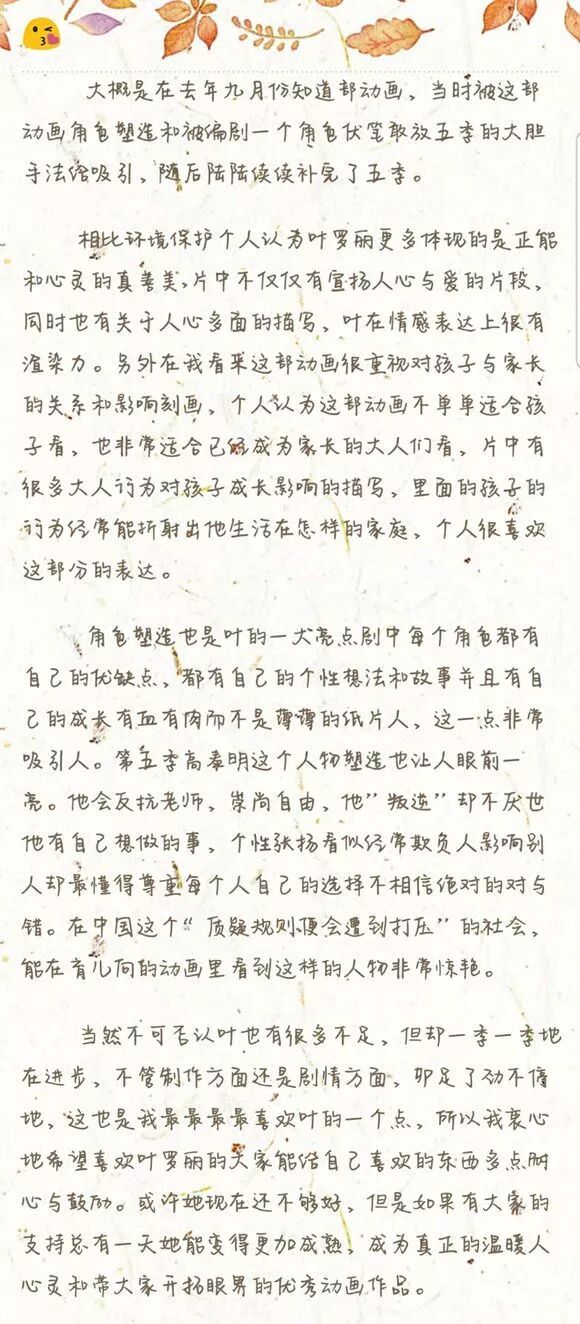 大概是在去年九月份知道部动画，当时被这部
动画角色塑造和被编剧一个角色伏笔敢放五季的大胆
手法给吸引，随后陆陆续续补完了五季。
相比环境保护个人认为叶罗丽更多体现的是正能
和心灵的真善美，片中不仅仅有宣扬人心与爱的片段，
同时也有关于人心多面的描写，叶在情感表达上很有
渲染力。另外在我看来这部动画很重视对孩子与家长
的关系和影响刻画，个人认为这部动画不单单适合孩
子看，也非常适合已经成为家长的大人们看，片中有
很多大人行为对孩子成长影响的描写，里面的孩子的
行为经常能折射出他生活在怎样的家庭，个人很喜欢
这部分的表达。
角色塑造也是叶的一大亮点剧中每个角色都有
自己的优缺点，都有自己的个性想法和故事并且有自
己的成长有血有肉而不是薄薄的纸片人，这一点非常
吸引人。第五季高泰明这个人物塑造也让人眼前一
亮。他会反抗老师，崇尚自由，他”叛逆”却不厌世
他有自己想做的事，个性张扬看似经常欺负人影响别
人却最懂得尊重每个人自己的选择不相信绝对的对与
错。在中国这个“质疑规则便会遭到打压”的社会，
能在育儿向的动画里看到这样的人物非常惊艳。
当然不可否认叶也有很多不足，但却一季一季地
在进步，不管制作方面还是剧情方面，卯足了劲不停
地，这也是我最最最最喜欢叶的一个点，所以我衷心
地希望喜欢叶罗丽的大家能给自己喜欢的东西多点耐
心与鼓励。或许她现在还不够好，但是如果有大家的
支持总有一天她能变得更加成熟，成为真正的温暖人
心灵和带大家开拓眼界的优秀动画作品。